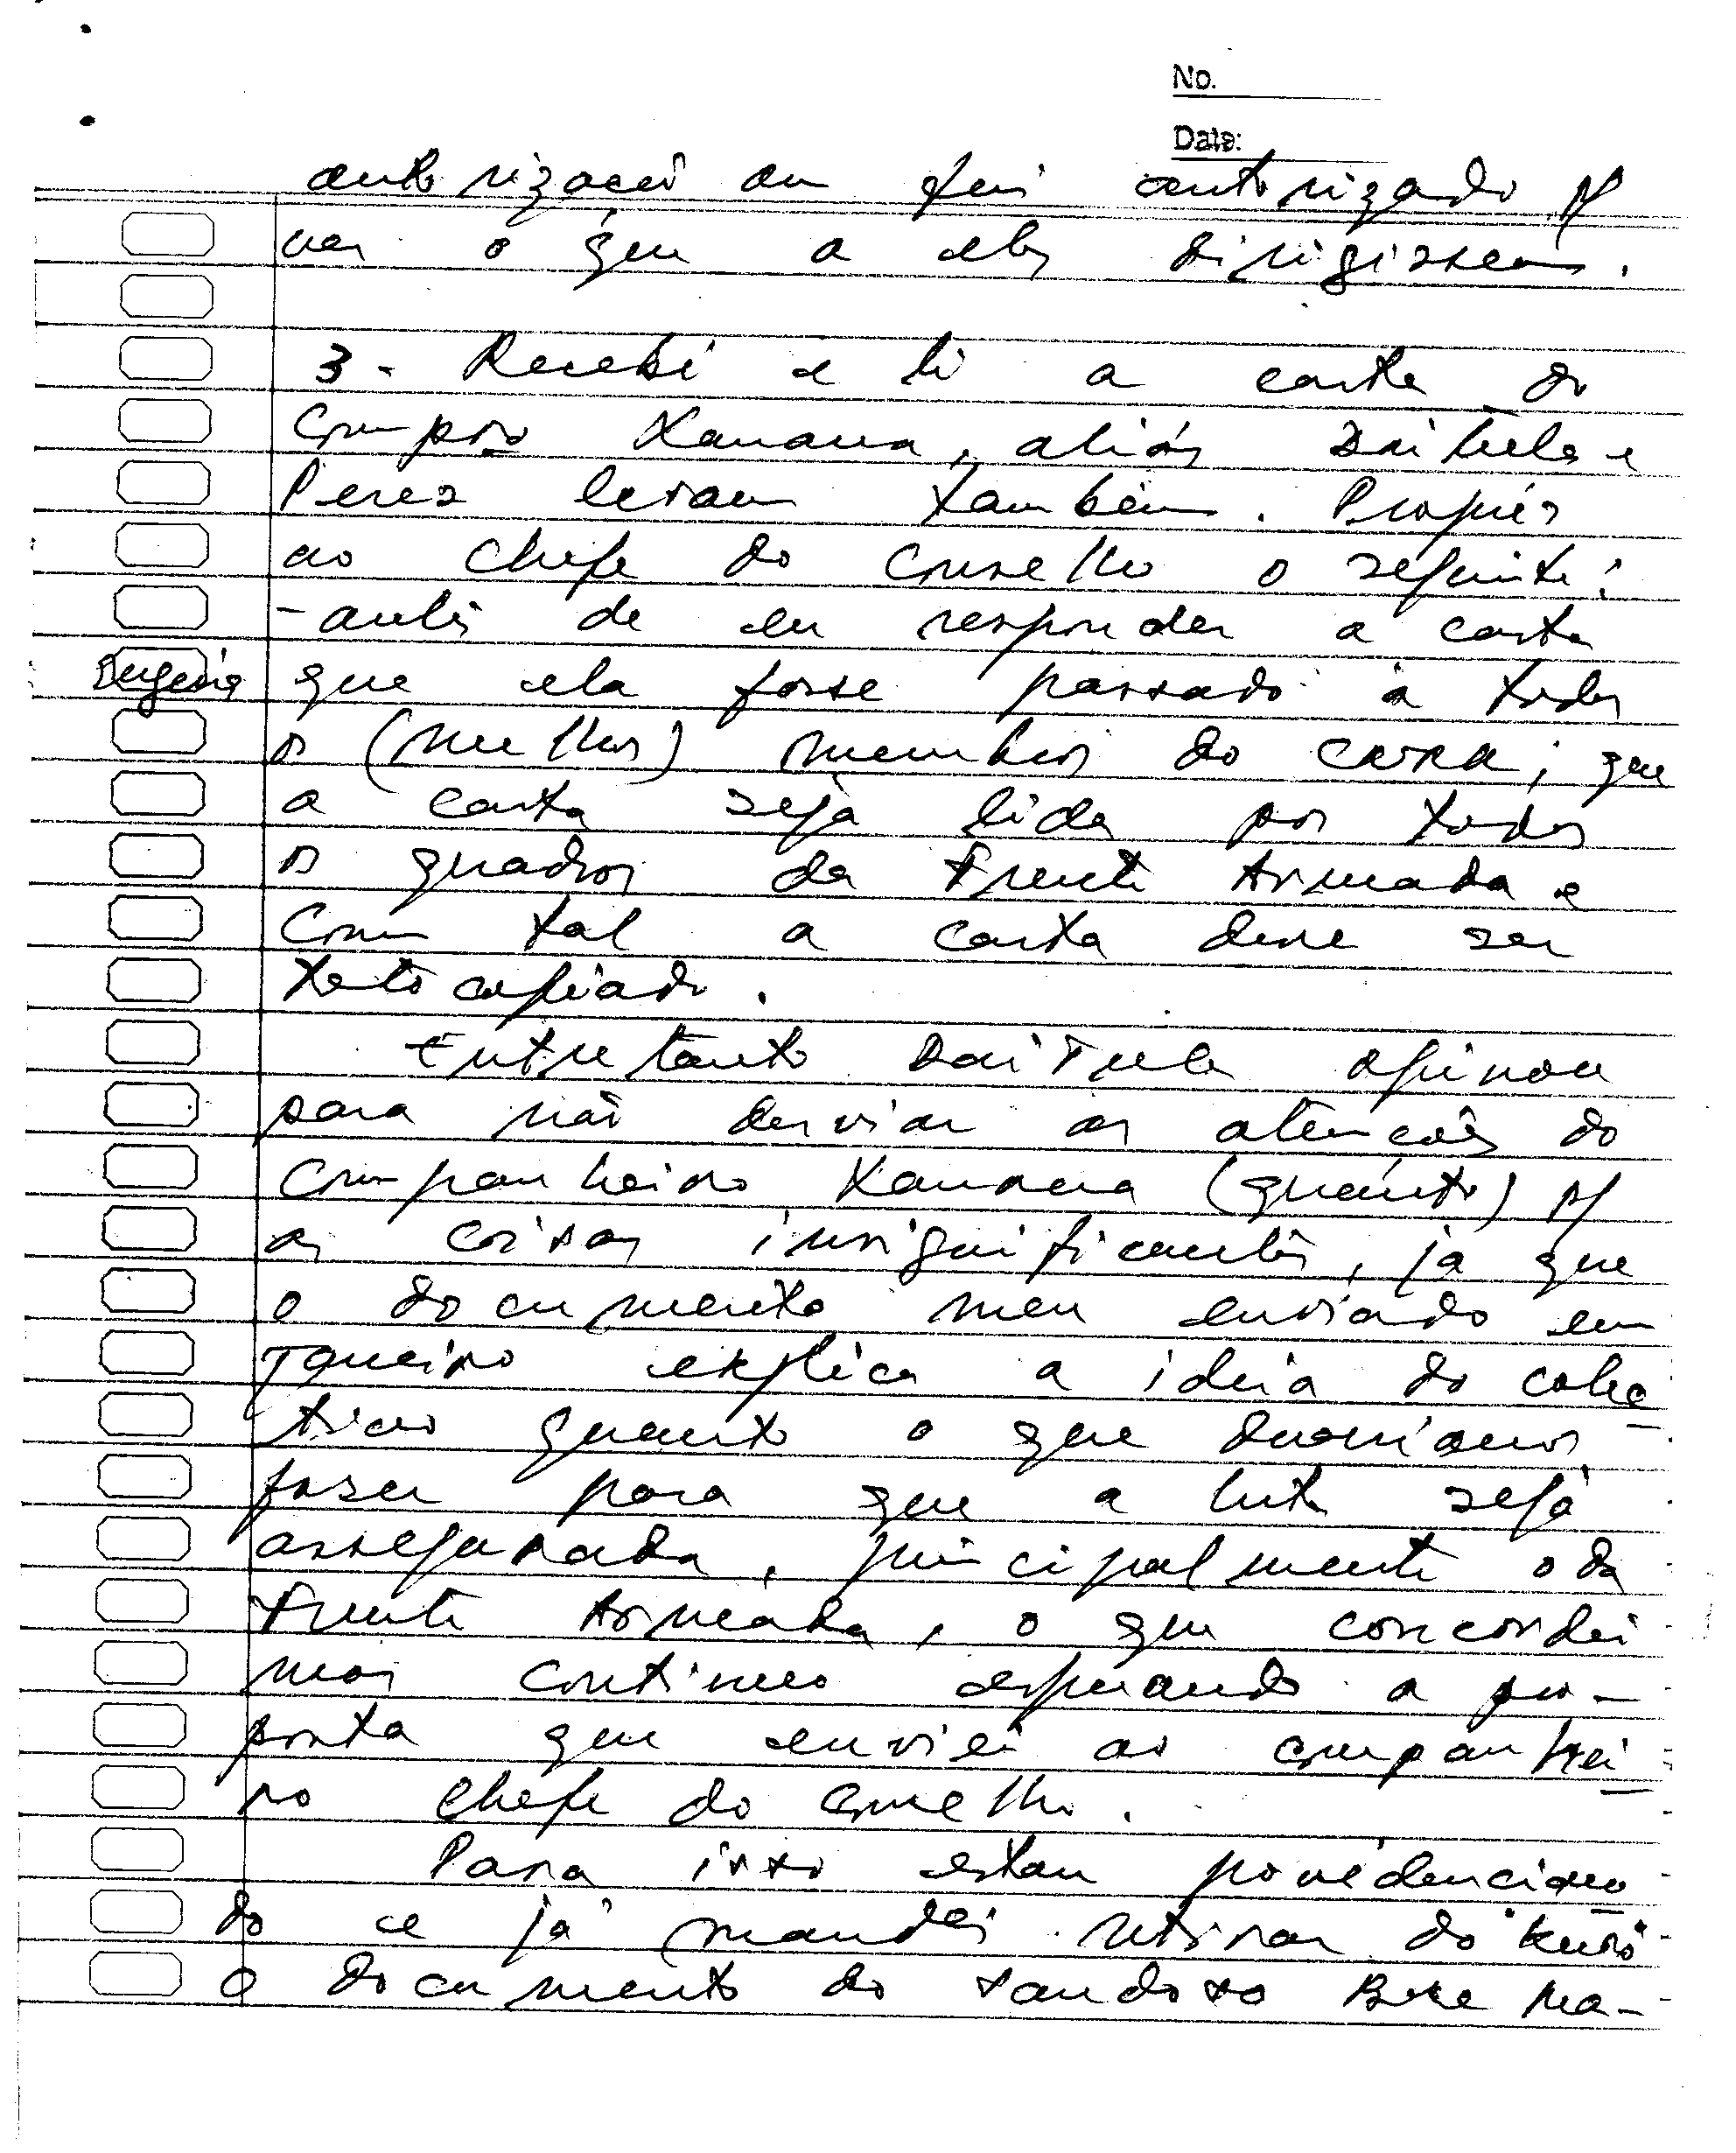 No.
Date:
autorização ou fui autorizado p/
ver o que a eles dirigissem.
3 - Recebi e li a carta do
Compro Xanana, aliás Daitula e
Perez leram também. Propus
ao Chefe do Conselho o seguinte:
- antes de eu responder a carta
que ela fosse passado à todos
os (melhor) membros do CERA; que
a carta seja lida por todos
os quadros da Frente Armada e
Com tal a carta deve ser
fotocopiado.
Entretanto Daitula opinou
para não desviar as atenções do
Companheiro Xanana (quanto) p/
as coisas insignificantes, já que
o documento meu enviado em
Janeiro explica a ideia do colec
tivo quanto o que devíamos
fazer para que a luta seja
assegurada, principalmente o da
Frente Armada, o que concordei
mas continuo esperando a pro-
posta que enviei ao companhei
ro Chefe do Conselho.
Para isso estou providencian
do e já mandei retirar do
o documento do saudoso Bere Ma-